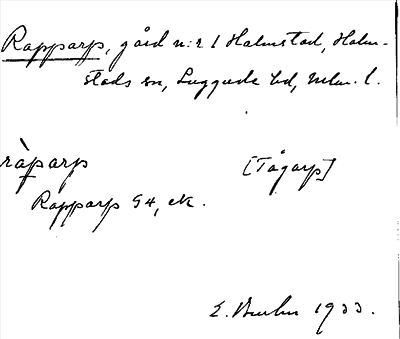 Rapparp, gård n:r 1 Halmstad, Halm-
stads sn, Luggude hd, Mlm. l.
ràparp [Tågarp]
Rapparp G4, ek.
1933.